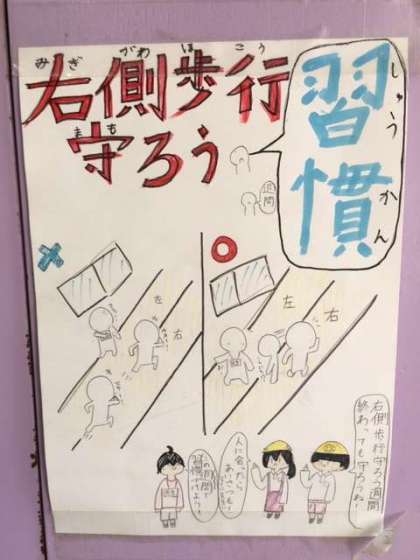 みぎ がわ ほ こう
右側歩行
まも
守ろう
しゅうかん
習慣
左
右
左
右
右側歩行守ろう週間
終わっても守ろうね！
人に会ったら
あいさつも！
習慣づけよう！